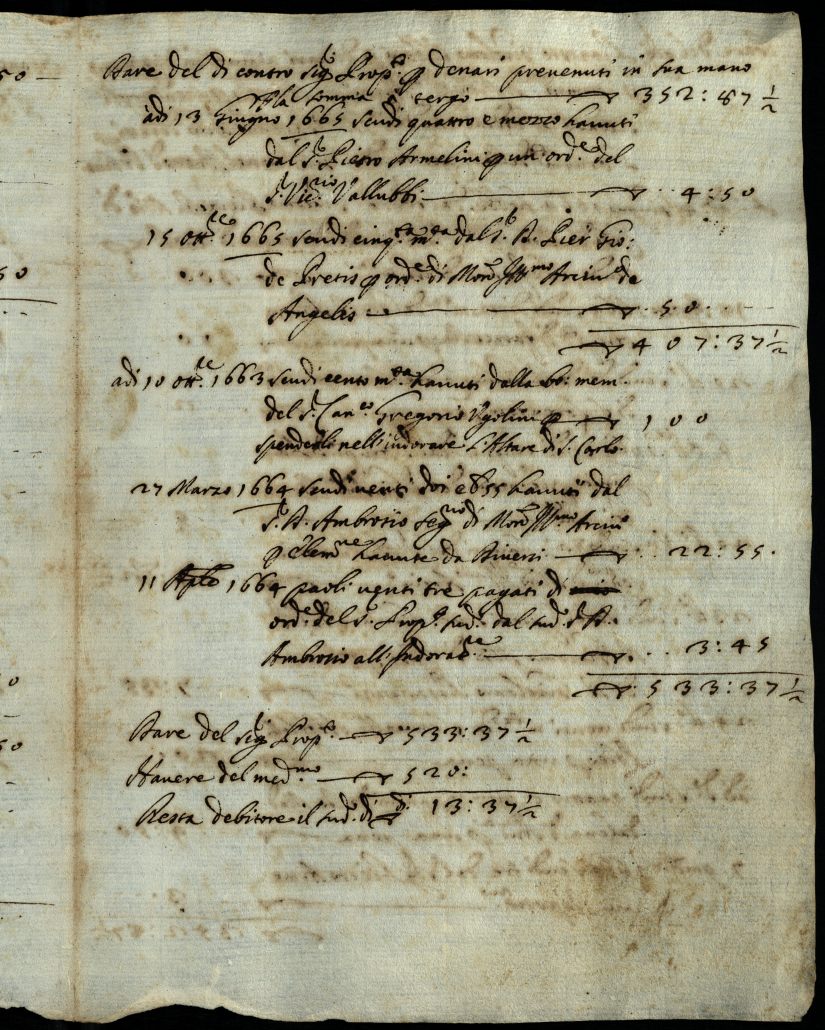 50 —
Dare del di contro sig.r Prop.to p denari prevenuti in sua mano
p la somma a tergo — 352 : 87 ½
adi 13 Giugno 1665 scudi quattro e mezzo havuti
dal S.r Pietro Armelini p un ord.e del
S.r Vic.rio Vallubbi — 4 : 50
15 Ott.re 1665 scudi cinq.ta m.ta dal S.r D. Pier Gio:
50
de Pretis p ord.e di Mons.r Ill.mo Arciv.o de
Angelis — 50
407 : 37 ½
adi 10 ott.re 1663 scudi cento m.ta havuti dalla bo: mem.
del S.r Can.co Gregorio Ugolini p — 100
spenderli nell'indorare l'Altare di S. Carlo
27 Marzo 1664 scudi venti doi e b 55 havuti dal
S.r D. Ambrosio Seg.rio di Mons.r Ill.mo Arciv.o
p elem.ne havute da Diversi — 22 : 55 .
11 Aple 1664 paoli venti tre pagati di
ord.e del S. Prop.to sud.o dal sud.o S.r D.
0
Ambrosio all'Indorat.re — 3 : 45
533 : 37 ½
Dare del sig.r Prop.to — 533 : 37 ½
50
Havere del med.mo — 520 :
Resta debitore il sud.o di 13 : 37 ½